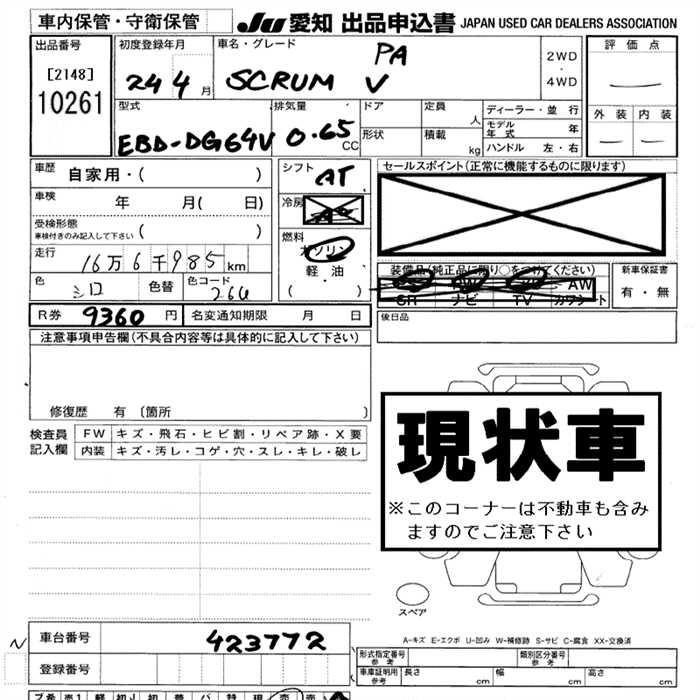 車内保管・守衛保管
JU 愛知 出品申込書 JAPAN USED CAR DEALERS ASSOCIATION
出品番号
[2148]
10261
初度登録年月
24 4 月
車名・グレード
PA
SCRUM V
2WD
・
4WD
評価点
外装 内装
型式
EBD-DG64V
排気量
0.65 CC
ドア
形状
定員 人
積載 kg
ディーラー・並行
モデル年式 年
ハンドル 左・右
車歴 自家用・( )
車検 年 月( 日)
受検形態
車検付きのみ記入して下さい ( )
走行 16万6千985km
色 シロ 色替 色コード 26U
シフト AT
冷房
燃料
ガソリン
軽油
( ・ )
セールスポイント(正常に機能するものに限ります)
装備品(純正品に限り○をつけてください)
PS PW AW
SR ナビ TV カワシート
新車保証書
有・無
R券 9360 円 名変通知期限 月 日
後日品
注意事項申告欄(不具合内容等は具体的に記入して下さい)
修復歴 有〔箇所 〕
検査員
記入欄
FW キズ・飛石・ヒビ割・リペア跡・X要
内装 キズ・汚レ・コゲ・穴・スレ・キレ・破レ
現状車
※このコーナーは不動車も含み
ますのでご注意下さい
スペア
A-キズ E-エクボ U-凹み W-補修跡 S-サビ C-腐食 XX-交換済
車台番号 423772
登録番号
形式指定番号
参考
類別区分番号
参考
車庫証明用
参考
長さ cm 幅 cm 高さ cm